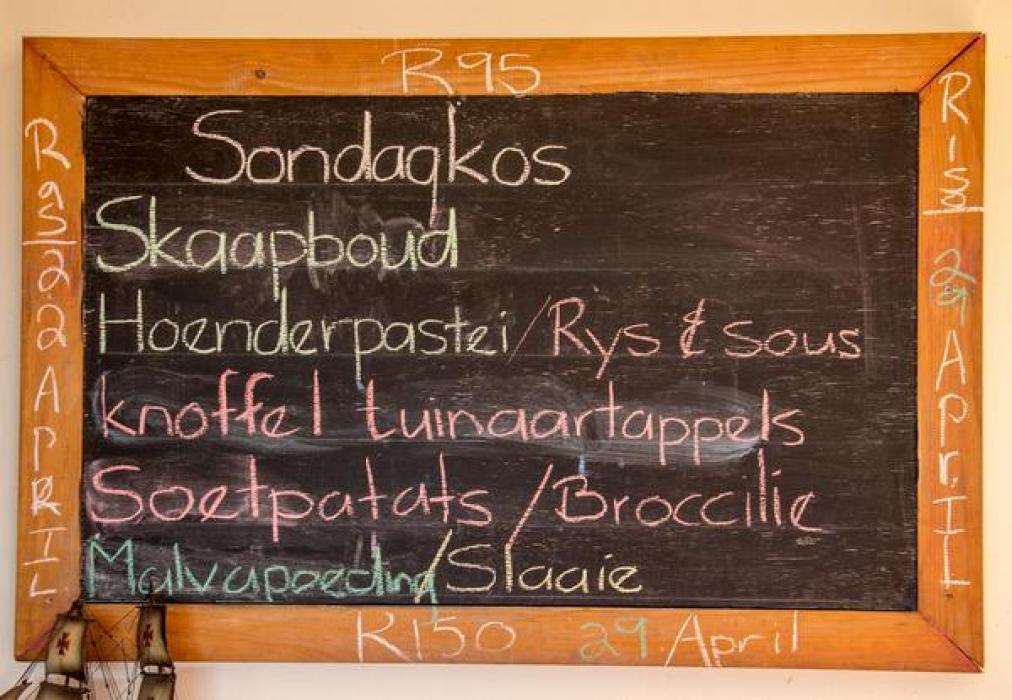 R95
Sondagkos
Skaapboud
Hoenderpastei / Rys & sous
knoffel tuinaartappels
Soetpatats / Broccilie
Malvapoeding / Slaaie
R150 29 April
R95 / 22 APRIL
R15 / 29 APrIL